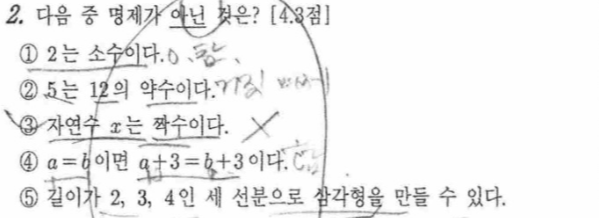 2. 다음 중 명제가 아닌 것은? [4.3점]
① 2는 소수이다. 참.
② 5는 12의 약수이다. 거짓
③ 자연수 x는 짝수이다. ×
④ a=b이면 a+3=b+3이다. 참
⑤ 길이가 2, 3, 4인 세 선분으로 삼각형을 만들 수 있다.